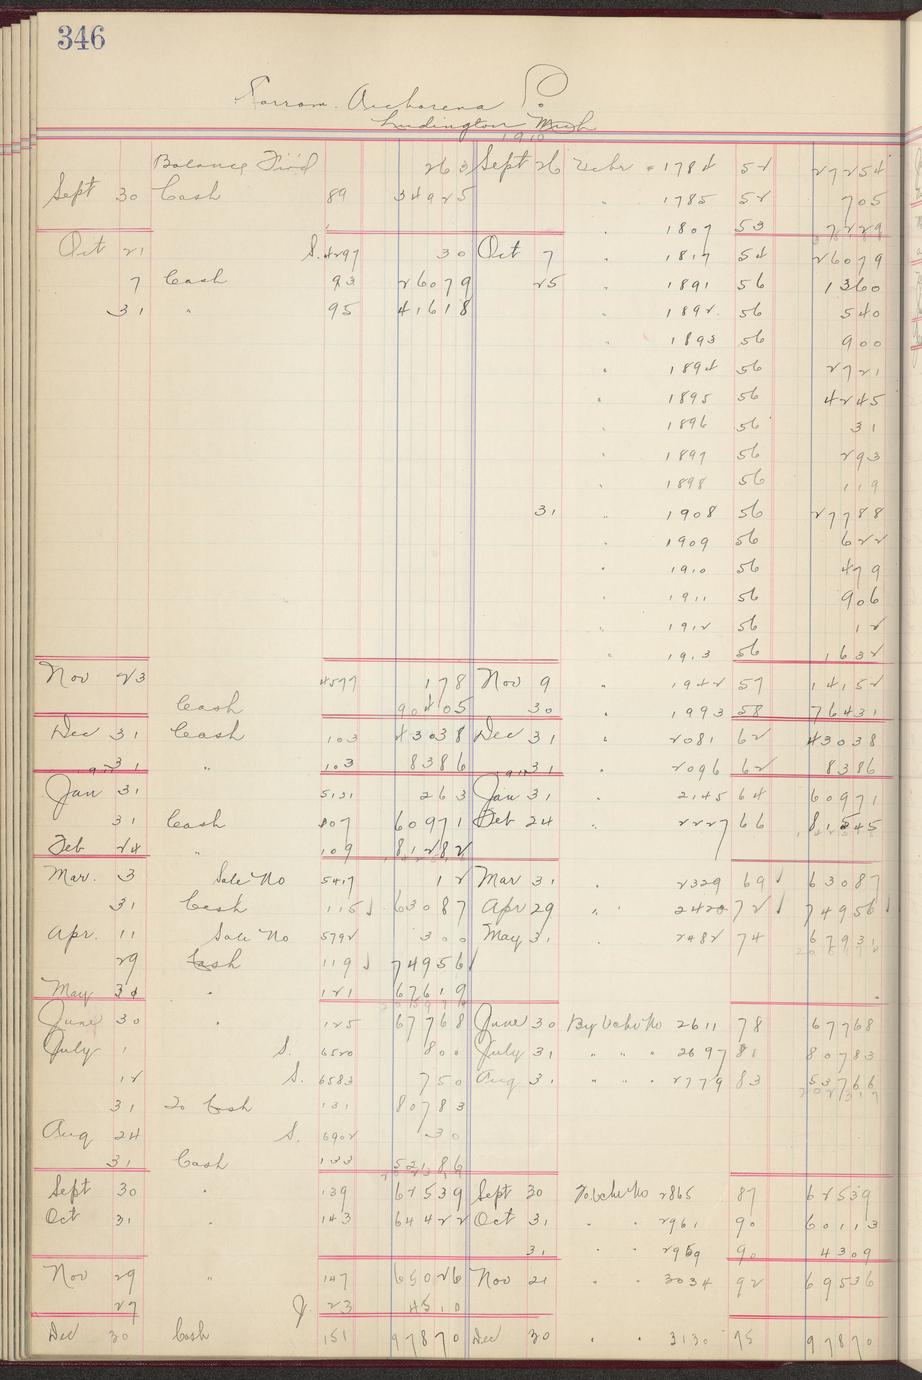 346
Ludington Mich
1910
Balance Fwd 263 Sept 26 Vchr " 1784 54 27254
Sept 30 Cash 89 34925 " 1785 52 705
" 1807 53 7229
Oct 21 S. 4297 30 Oct 7 " 1817 54 26079
7 Cash 93 26079 25 " 1891 56 1360
31 " 95 41618 " 1892 56 540
" 1893 56 900
" 1894 56 2721
" 1895 56 4245
" 1896 56 31
" 1897 56 293
" 1898 56 119
31 " 1908 56 27788
" 1909 56 622
" 1910 56 479
" 1911 56 906
" 1912 56 12
" 1913 56 1632
Nov 23 4577 178 Nov 9 " 1942 57 14152
Cash 90405 30 " 1993 58 76431
Dec 31 Cash 103 43038 Dec 31 " 2081 62 43038
31 " 103 8386 31 " 2096 62 8386
Jan 31 5131 263 Jan 31 " 2145 64 60971
31 Cash 107 60971 Feb 24 " 2227 66 81545
Feb 24 " 109 81282
Mar. 3 Sale No 5417 12 Mar 31 " 2329 69 63087
31 Cash 115 63087 Apr 29 " " 2420 72 74956
Apr. 11 Sale No 5792 300 May 31 " 2482 74 67931
29 Cash 119 74956
May 31 " 121 67619
June 30 " 125 67768 June 30 By Vchr No 2611 78 67768
July 1 S. 6520 800 July 31 " " " 2697 81 80783
12 S. 6583 750 Aug 31 " " " 2779 83 53766
31 To Cash 131 80783
Aug 24 S. 6902 30
31 Cash 133 52186
Sept 30 " 139 62539 Sept 30 To Vchr No 2865 87 62539
Oct 31 " 143 64422 Oct 31 " " 2961 90 60113
31 " " 2969 90 4309
Nov 29 " 147 65026 Nov 21 " " 3034 92 69536
27 J. 23 4510
Dec 30 Cash 151 97870 Dec 30 " " 3130 95 97870